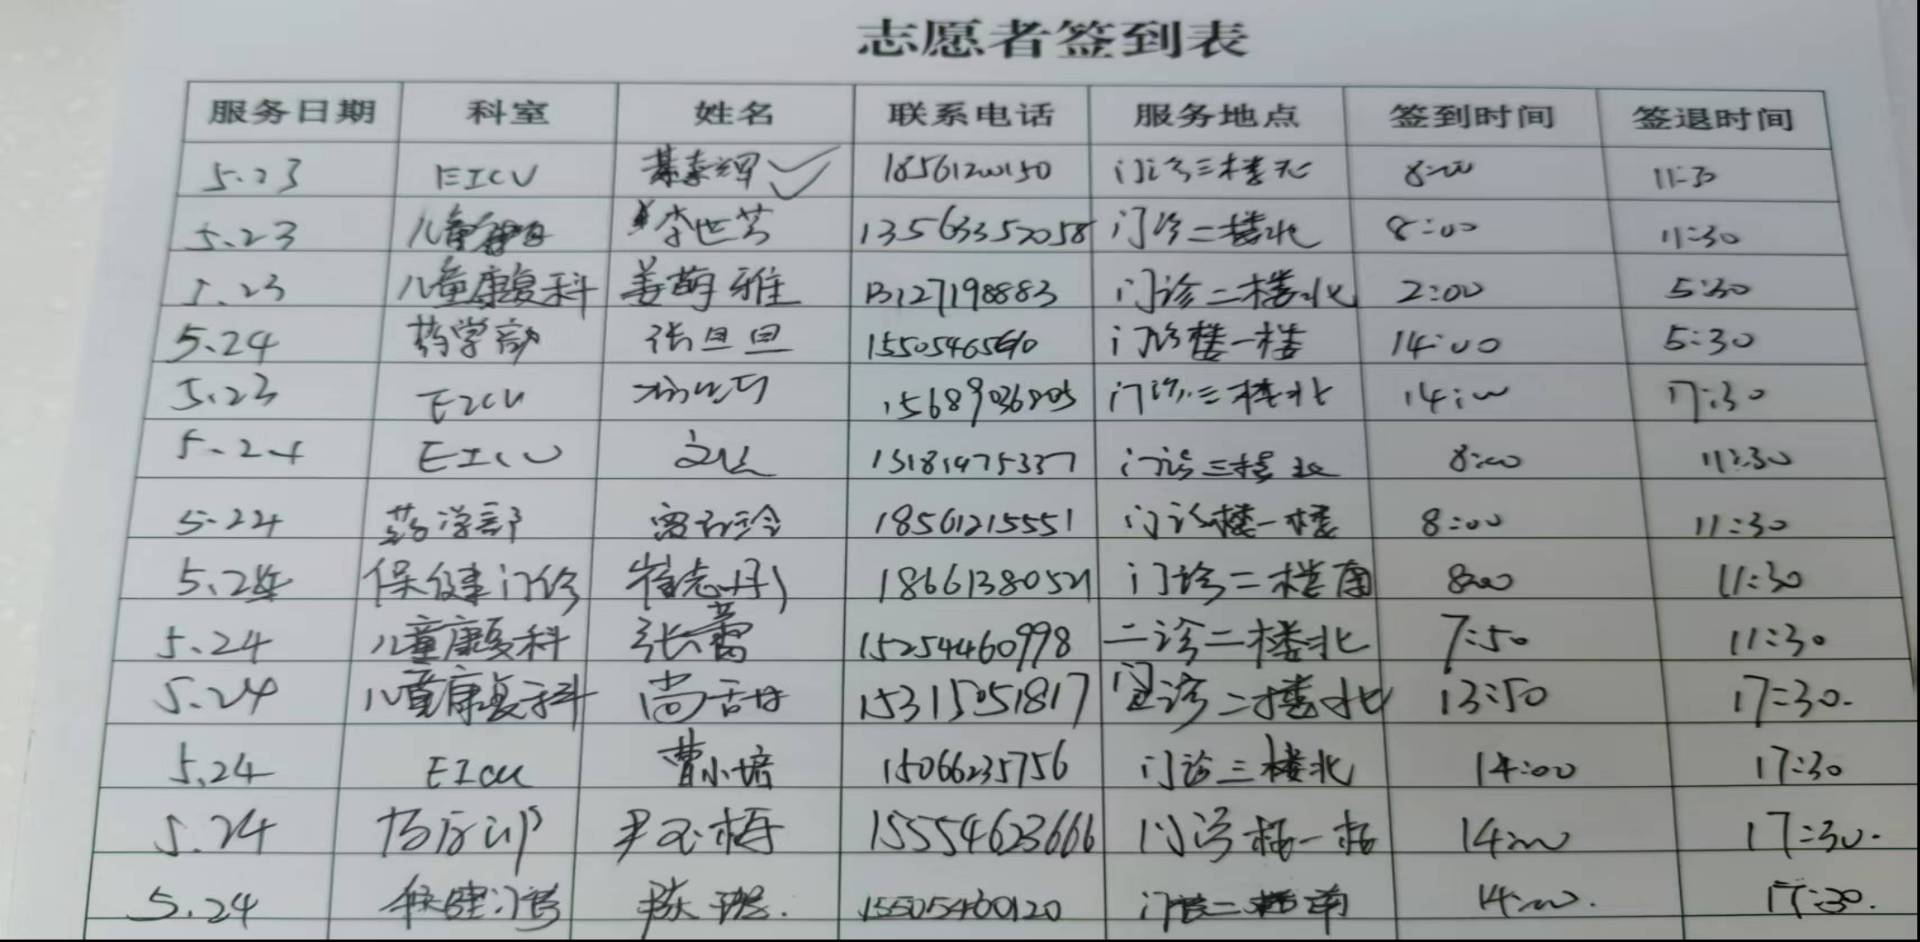 志愿者签到表
服务日期 科室 姓名 联系电话 服务地点 签到时间 签退时间
5.23 EICU 18561200150 门诊三楼北 8:00 11:30
5.23 儿童 李世芳 13563352058 门诊二楼北 8:00 11:30
5.23 儿童康复科 姜萌雅 13127198883 门诊二楼北 2:00 5:30
5.24 药学部 张旦旦 门诊楼一楼 14:00 5:30
5.23 EICU 门诊三楼北 14:00 17:30
5.24 EICU 门诊三楼北 8:00 11:30
5.24 药学部 18561215551 门诊楼一楼 8:00 11:30
5.24 保健门诊 崔志丹 18661380521 门诊二楼南 8:00 11:30
5.24 儿童康复科 张蕾 15254460998 二诊二楼北 7:50 11:30
5.24 儿童康复科 尚甜甜 15315051817 门诊二楼北 13:50 17:30.
5.24 EICU 曹小培 15066235756 门诊三楼北 14:00 17:30
5.24 尹玉梅 15554623666 门诊楼一楼 14:00 17:30.
5.24 保健门诊 15505460120 门诊二楼南 14:00. 17:30.